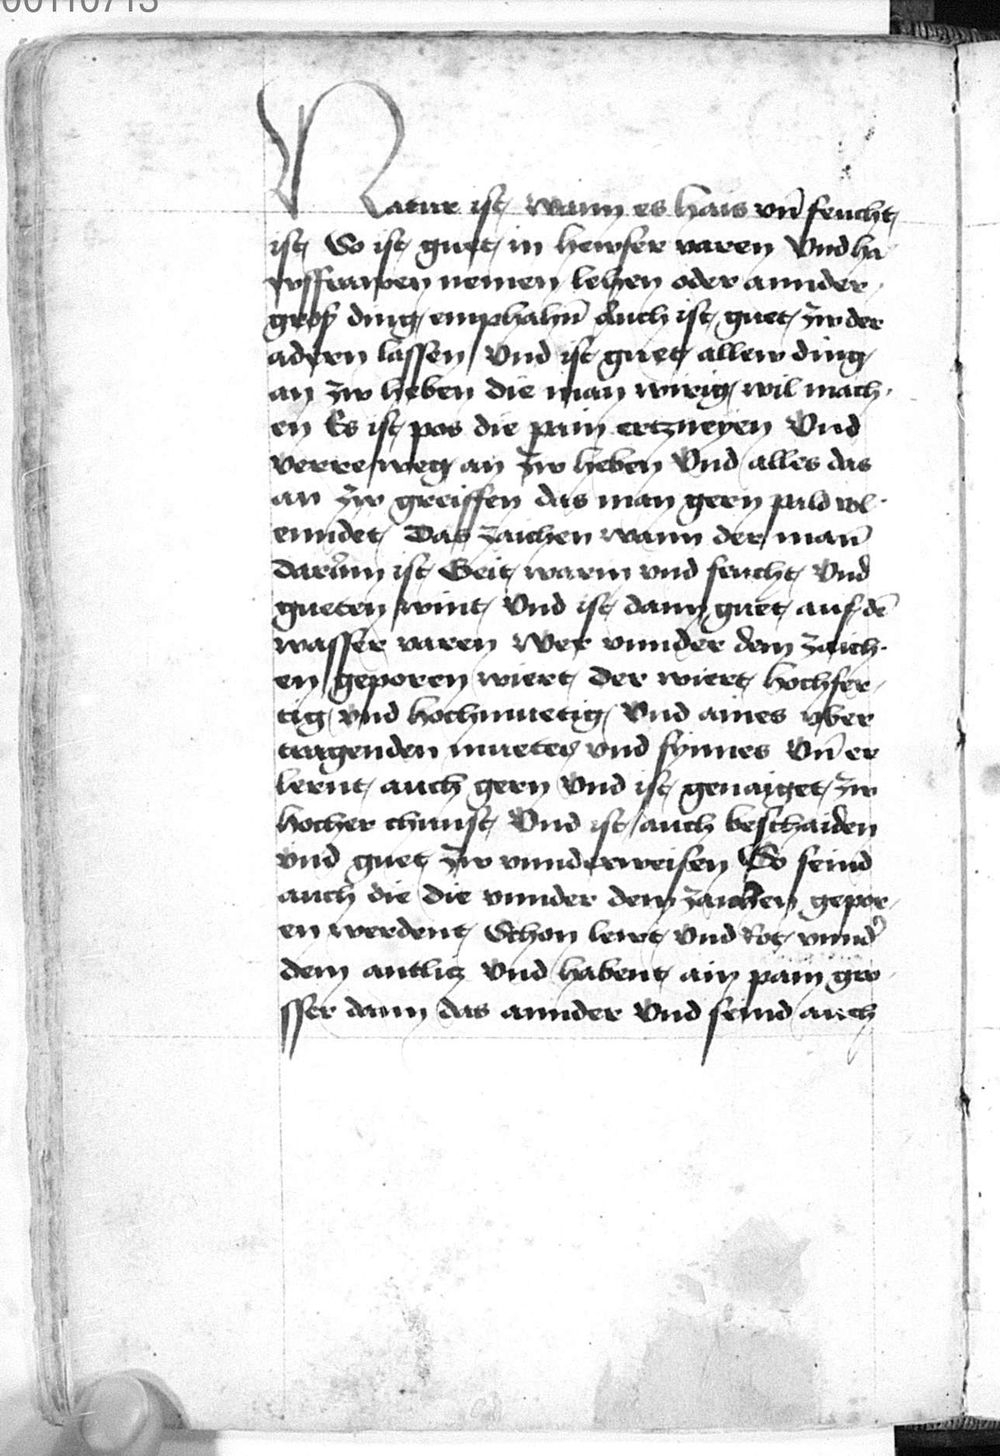 00110713
Natur ist wann es hais vn̄ feucht
ist So ist guet in hewser varen Vnd ha
wsfrawen nemen lehen oder annder
gros ding emphahn̄ Auch ist guet zw der
adern lassen Vnd ist guet allew ding
an zw heben die man wirig wil mach
en Es ist pos die pain ertzneyen Vnd
verre weg an zw heben Vnd alles das
an zw greiffen das man gern pald vol
enndet Das zaichen wann der man̄
darInn ist Geit warm vnd feucht Vnd
gueten wint Vnd ist dann guet auf dē
wasser varen Wer vnnder dem zaich
en geporen wiert der wiert hochfer
tig vnd hochmuetig Vnd aines vber
tragenden muetes vnd synnes Vn̄ er
lernt auch gern Vnd ist genaiget zw
hocher chunst Vnd ist auch beschaiden
vnd guet zw vnnderweisen So seind
auch die die vnnder dem zaichen gepor
en werdent Schon lewt Vnd Rot vnnd'
dem antlitz Vnd habent ain pain gro
sser dann das annder Vnd seind auch